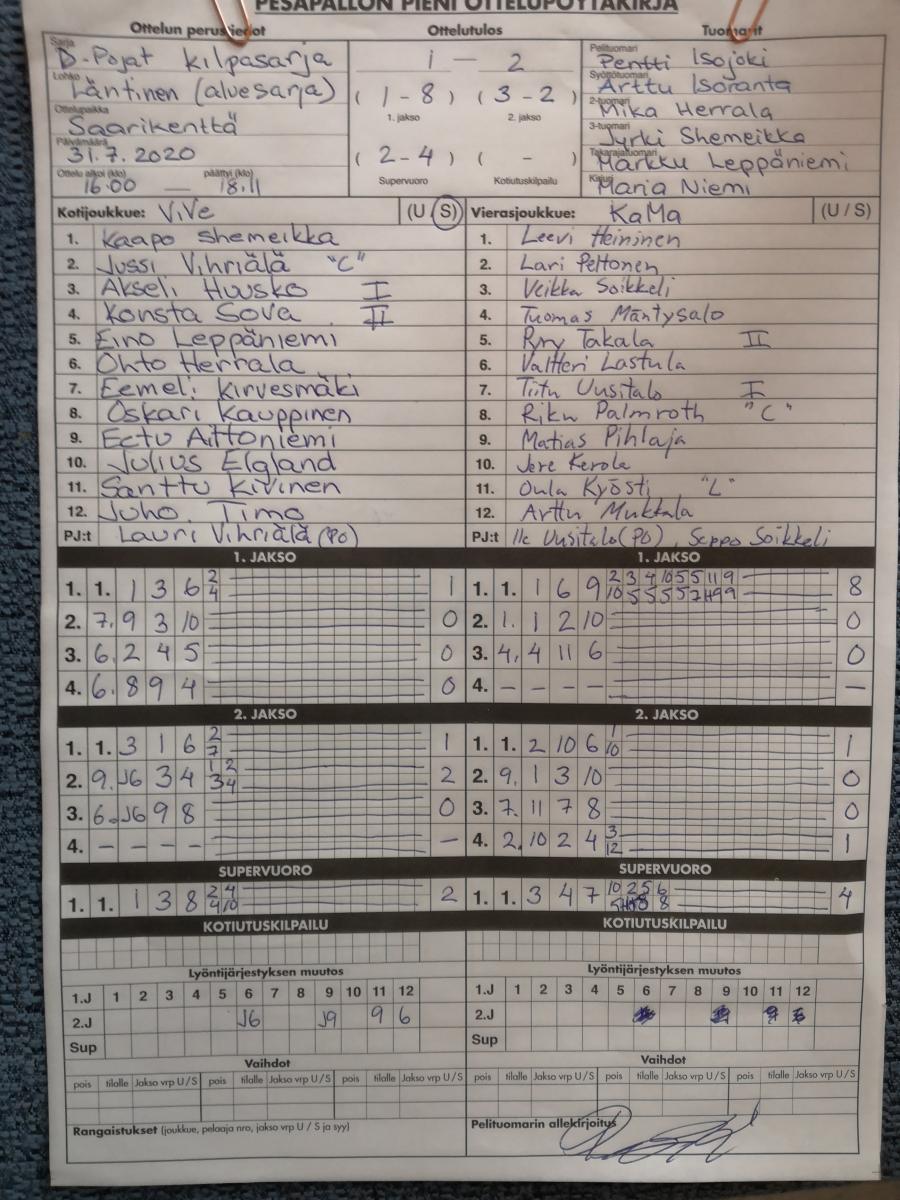 PESÄPALLON PIENI OTTELUPÖYTÄKIRJA
Ottelun perustiedot
Sarja
D-Pojat kilpasarja
Lohko
Läntinen (aluesarja)
Ottelupaikka
Saarikenttä
Päivämäärä
31.7.2020
Ottelu alkoi (klo) päättyi (klo)
16.00 — 18.11
Ottelutulos
1 — 2
(1-8) (3-2)
1. jakso 2. jakso
(2-4) ( - )
Supervuoro Kotiutuskilpailu
Tuomarit
Pelituomari
Pentti Isojoki
Syöttötuomari
Arttu Isoranta
2-tuomari
Mika Herrala
3-tuomari
Jyrki Shemeikka
Takarajatuomari
Markku Leppäniemi
Kirjuri
Maria Niemi
Kotijoukkue: ViVe (U/S)
1. Kaapo Shemeikka
2. Jussi Vihriälä "C"
3. Akseli Huusko I
4. Konsta Sova II
5. Eino Leppäniemi
6. Ohto Herrala
7. Eemeli Kirvesmäki
8. Oskari Kauppinen
9. Eetu Aittoniemi
10. Julius Elgland
11. Santtu Kivinen
12. Juho Timo
PJ:t Lauri Vihriälä (PO)
Vierasjoukkue: KaMa (U/S)
1. Leevi Heininen
2. Lari Peltonen
3. Veikka Soikkeli
4. Tuomas Mäntysalo
5. Takala II
6. Valtteri Lastula
7. Tiitu Uusitalo I
8. Riku Palmroth "C"
9. Matias Pihlaja
10. Jere Kerola
11. Oula Kyösti "L"
12. Arttu Mukkala
PJ:t Uusitalo (PO), Seppo Soikkeli
1. JAKSO
1. 1. 1 3 6 2 4 1
2. 7. 9 3 10 0
3. 6. 2 4 5 0
4. 6. 8 9 4 0
2. JAKSO
1. 1. 3 1 6 2 7 1
2. 9. J6 3 4 1 2 3 4 2
3. 6. J6 9 8 0
4. - - - - -
SUPERVUORO
1. 1. 1 3 8 2 4 4 10 2
KOTIUTUSKILPAILU
Lyöntijärjestyksen muutos
1.J 1 2 3 4 5 6 7 8 9 10 11 12
2.J J6 J9 9 6
Sup
Vaihdot
pois tilalle Jakso vrp U/S pois tilalle Jakso vrp U/S pois tilalle Jakso vrp U/S
Rangaistukset (joukkue, pelaaja nro, jakso vrp U / S ja syy)
1. JAKSO
1. 1. 1 6 9 2 3 4 10 5 5 11 9 8
2. 1. 1 2 10 0
3. 4. 4 11 6 0
4. - - - - -
2. JAKSO
1. 1. 2 10 6 1 10 1
2. 9. 1 3 10 0
3. 7. 11 7 8 0
4. 2. 10 2 4 3 12 1
SUPERVUORO
1. 1. 3 4 7 10 2 5 6 4
KOTIUTUSKILPAILU
Lyöntijärjestyksen muutos
1.J 1 2 3 4 5 6 7 8 9 10 11 12
2.J
Sup
Vaihdot
pois tilalle Jakso vrp U/S pois tilalle Jakso vrp U/S pois tilalle Jakso vrp U/S
Pelituomarin allekirjoitus